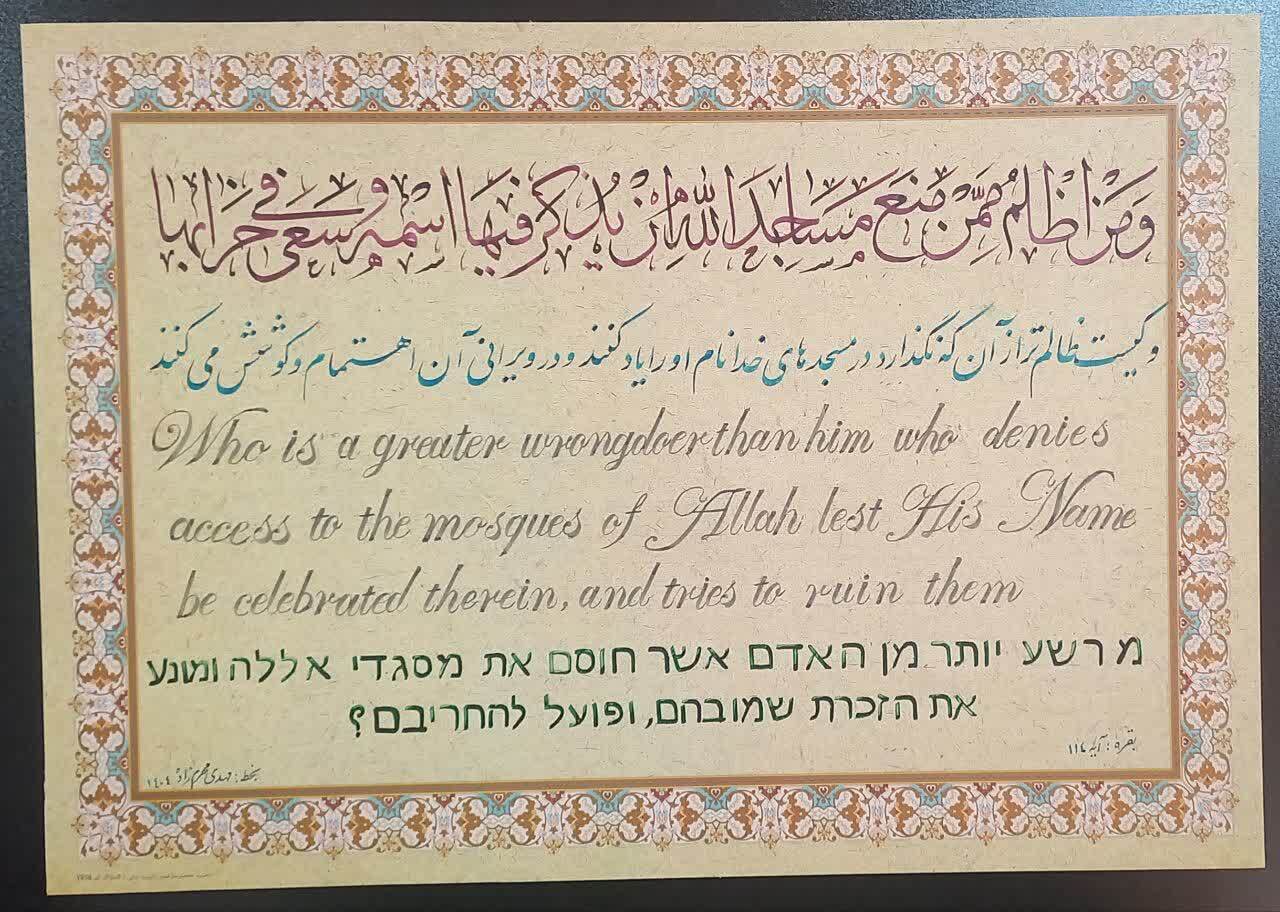 وَمَنْ اَظْلَمُ مِمَّنْ مَنَعَ مَسَاجِدَ اللّٰهِ اَنْ يُذْكَرَ فِيهَا اسْمُهُ وَسَعٰى فِي خَرَابِهَا
و کیست ظالم‌تر از آن که نگذارد در مسجدهای خدا نام او را یاد کنند و در ویرانی آن اهتمام و کوشش می کنند
Who is a greater wrongdoer than him who denies
access to the mosques of Allah lest His Name
be celebrated therein, and tries to ruin them
מ רשע יותר מן האדם אשר חוסם את מסגדי אללה ומונע
את הזכרת שמובהם, ופועל להחריבם?
بقره: آیه ١١٤
بخط: مهدی محرم زاد ١٤٠٤